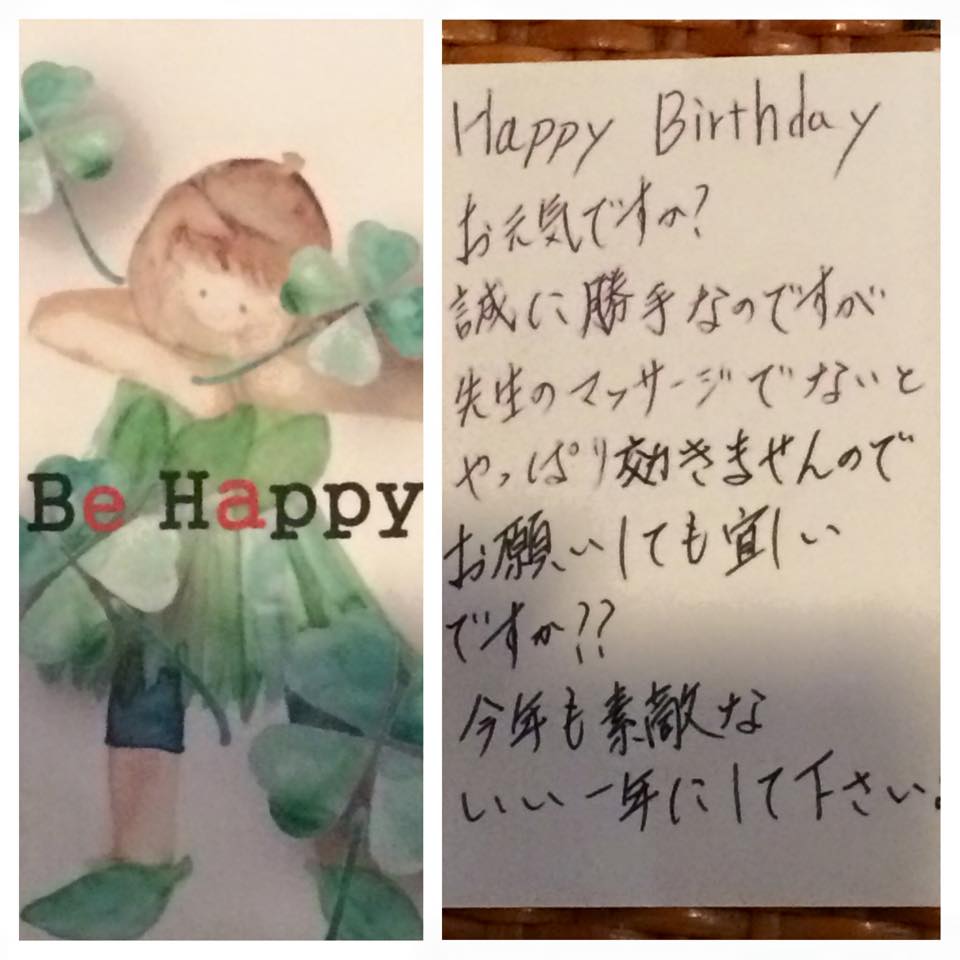 Be Happy
Happy Birthday
お元気ですか?
誠に勝手なのですが
先生のマッサージでないと
やっぱり効きませんので
お願いしても宜しい
ですか??
今年も素敵な
いい一年にして下さい。